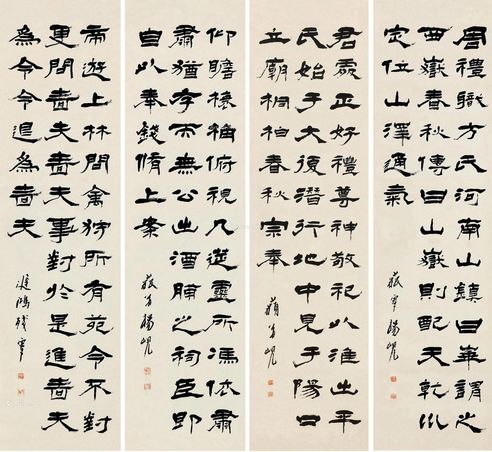 周禮職方氏河南山鎮曰華謂之
西嶽春秋傳曰山嶽則配天乾巛
定位山澤通氣
藐翁楊峴
君處正好禮尊神敬祀以淮出平
氏始于大復潛行地中見于陽口
立廟桐柏春秋宗奉
藐翁峴
仰瞻榱桷俯視几筵靈所馮依肅
肅猶存而無公出酒脯之祠臣即
自以奉錢脩上案
藐翁楊峴
帝遊上林問禽狩所有苑令不對
更問嗇夫嗇夫事對於是進嗇夫
為令令退為嗇夫
遲鴻殘叟